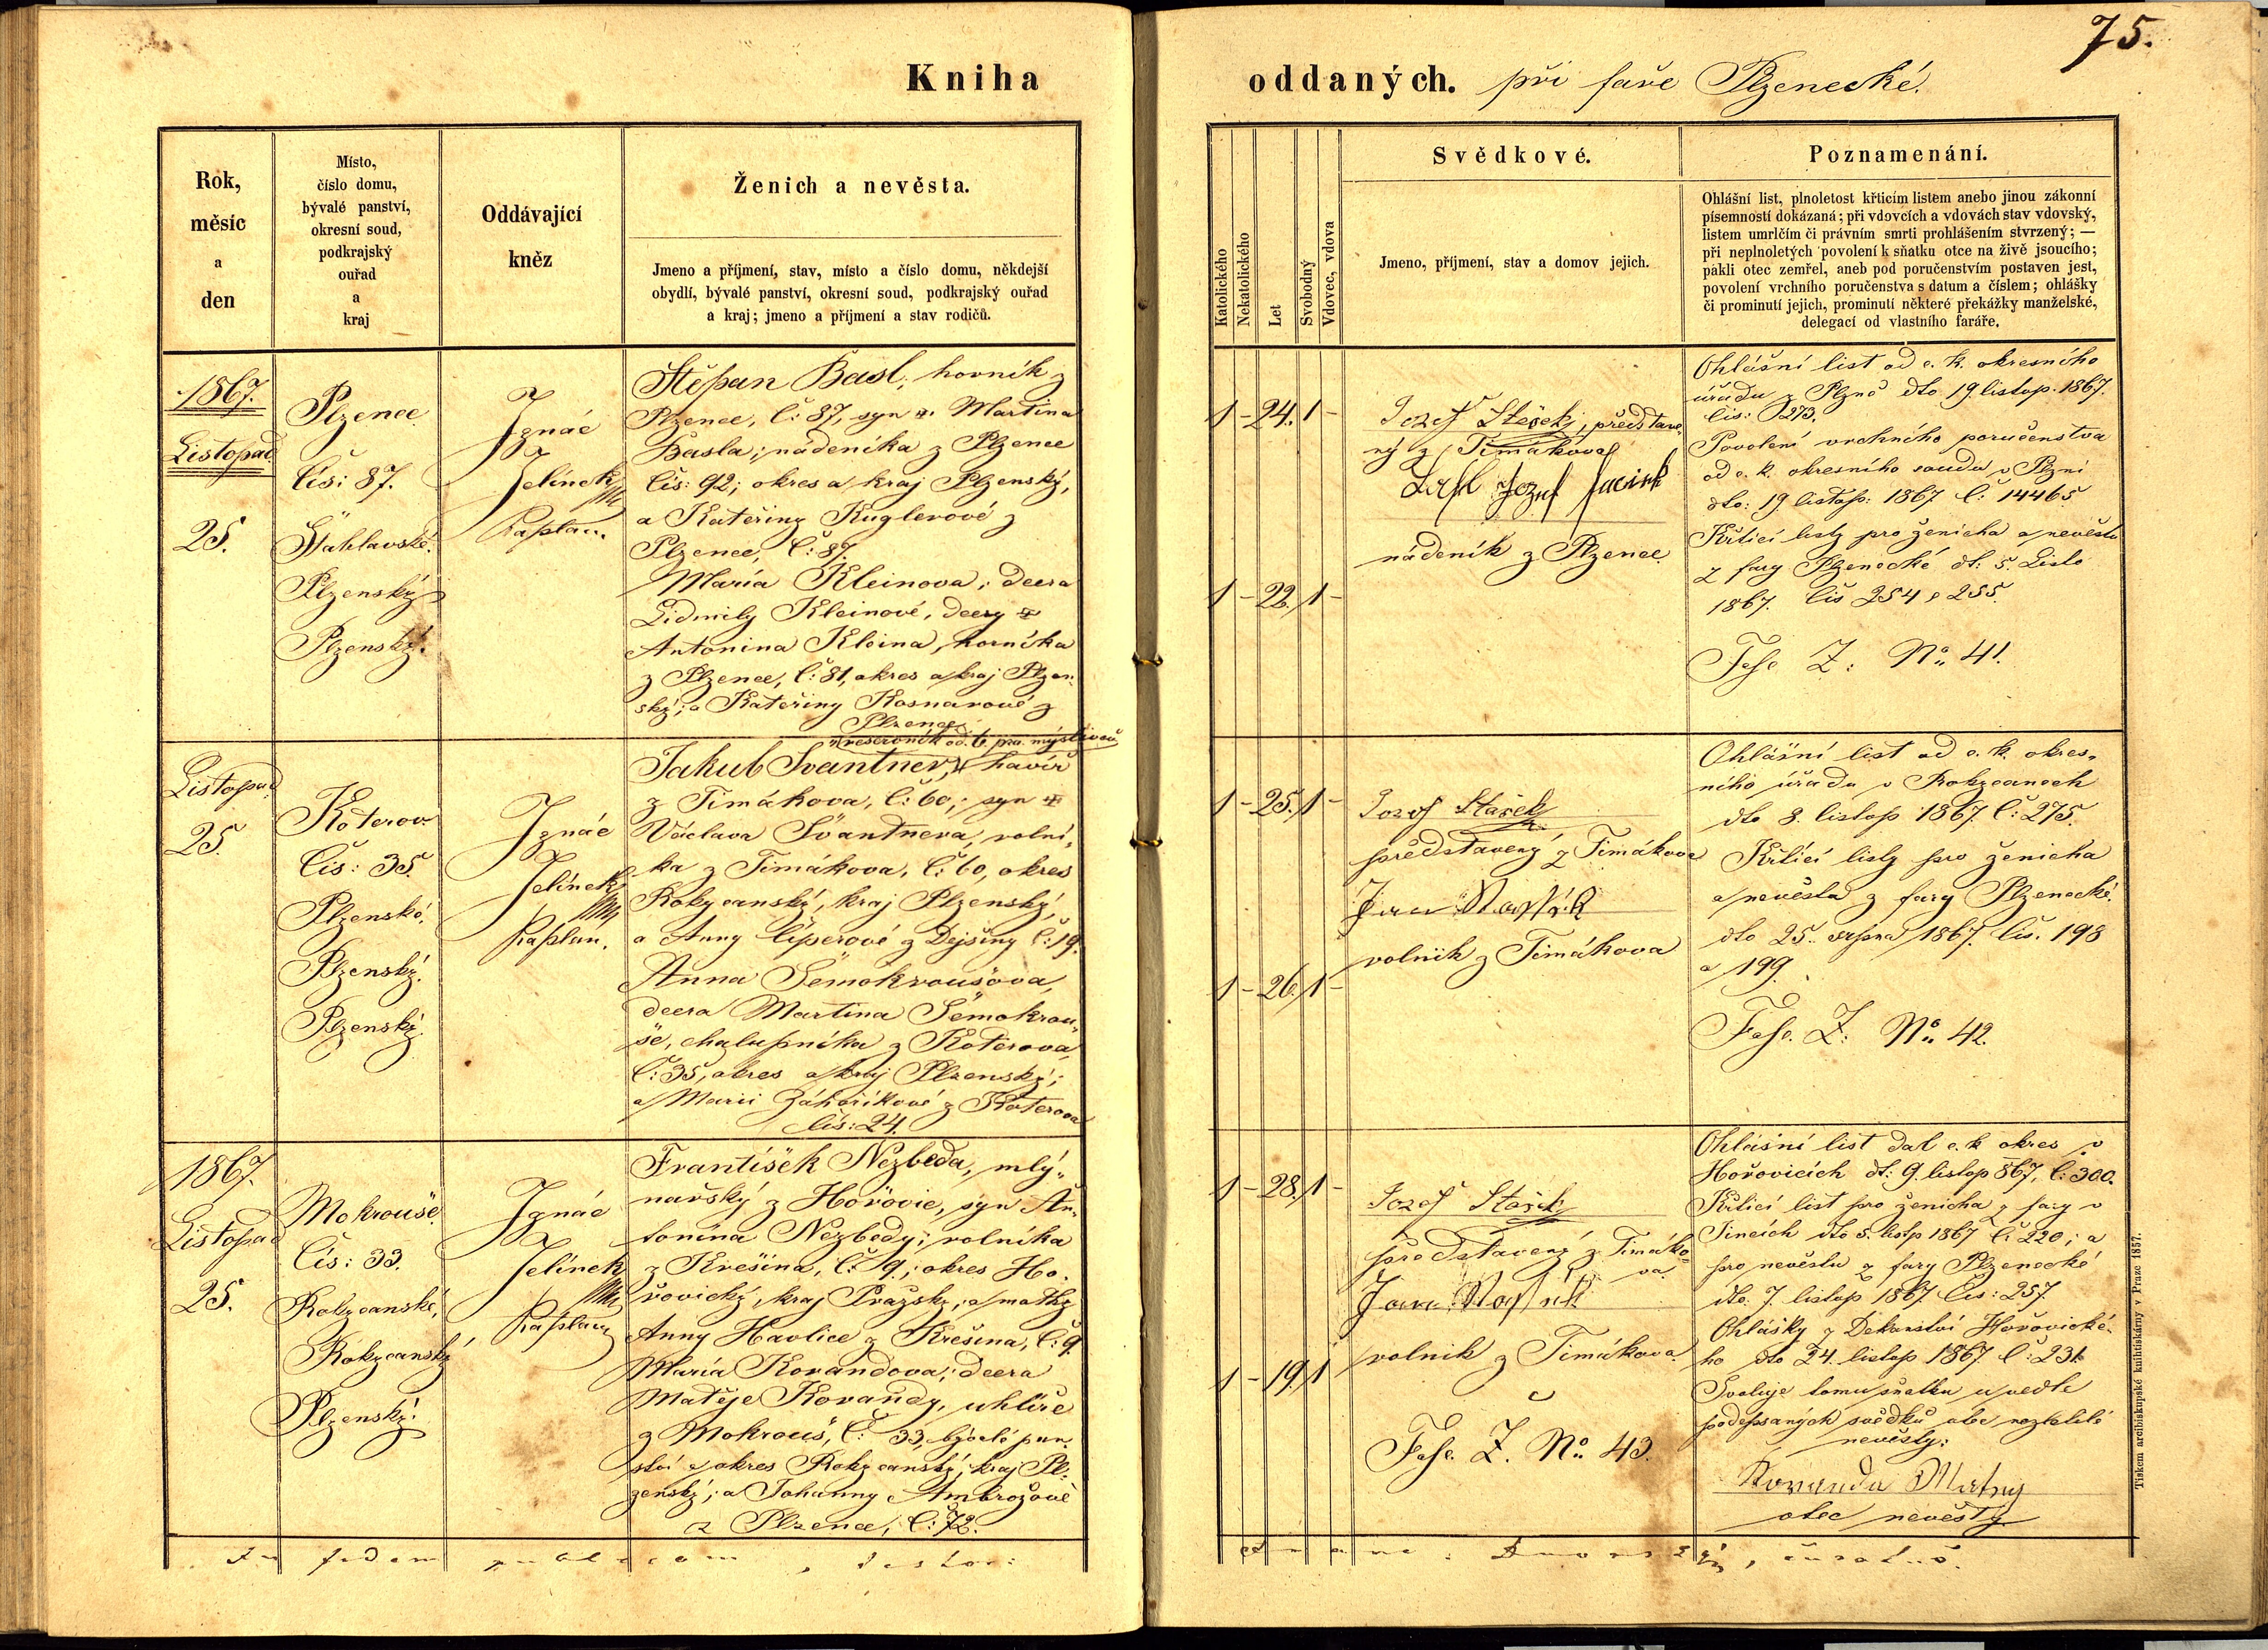 75.
Kniha
oddaných. při faře Plzenecké.
Rok,
měsíc
a
den
Místo,
číslo domu,
bývalé panství,
okresní soud,
podkrajský
ouřad
a
kraj
Oddávající
kněz
Ženich a nevěsta.
Jmeno a příjmení, stav, místo a číslo domu, někdejší
obydlí, bývalé panství, okresní soud, podkrajský ouřad
a kraj; jmeno a příjmení a stav rodičů.
Katolického
Nekatolického
Let
Svobodný
Vdovec, vdova
Svědkové.
Jmeno, příjmení, stav a domov jejich.
Poznamenání.
Ohlášní list, plnoletost křticím listem anebo jinou zákonní
písemností dokázaná; při vdovcích a vdovách stav vdovský,
listem umrlčím či právním smrti prohlášením stvrzený; —
při neplnoletých povolení k sňatku otce na živě jsoucího;
pakli otec zemřel, aneb pod poručenstvím postaven jest,
povolení vrchního poručenstva s datum a číslem; ohlášky
či prominutí jejich, prominutí některé překážky manželské,
delegací od vlastního faráře.
1867.
Listopad
25.
Plzenec
Čís: 87.
Šťáhlavské.
Plzenský
Plzenský.
Ignác
Jelínek
Kaplan.
Štěpan Basl, horník z
Plzence, Č: 87, syn Martina
Basla; nádeníka z Plzence
Čís: 92; okres a kraj Plzenský,
a Kateřiny Kuglerové z
Plzence, Č: 87.
Maria Kleinova; dcera
Lidmily Kleinové, dcery
Antonina Kleina, horníka
z Plzence, Č: 81, okres a kraj Plzen-
ský; a Kateřiny Kosnarové z
Plzence.
1 - 24. 1 -
1 - 22. 1 -
Jozef Stašek, představe-
ný z Timákova
nádeník z Plzence.
Ohlášní list od c. k. okresního
úřadu z Plzně dto 19. listop. 1867.
čís: 273.
Povolení vrchního poručenstva
od c. k. okresního soudu v Plzni
dto: 19 listop: 1867 Č: 14465
Křticí listy pro ženicha a nevěstu
z fary Plzenecké dt: 5. Listo
1867. Čís 254 a 255.
Fasc Z: No. 41.
Listopad
25.
Koterov
Čís: 35.
Plzenské.
Plzenský.
Plzenský.
Ignác
Jelínek
Kaplán.
reservník od 6. pra. myslivců
Jakub Svantner, havíř
z Timákova, Č: 60,; syn
Václava Svantnera, rolní-
ka z Timákova, Č: 60, okres
Rokycanský, kraj Plzenský,
a Anny Čípserové z Dejšiny Č: 19.
Anna Šemokroušova,
dcera Martina Šemokrou-
še, chalupníka z Koterova
Č: 35, okres a kraj Plzenský;
a Marii Záhoříkové z Koterova
Čís: 24.
1 - 25. 1 -
1 - 26. 1 -
Jozef Stašek
představený z Timákova
Jan
rolník z Timákova
Ohlášní list od c. k. okres-
ního úřadu v Rokycanech
dto 8. listop 1867. Č: 275.
Křticí listy pro ženicha
a nevěstu z fary Plzenecké.
dto 25. srpna 1867. Čís. 198
a 199.
Fasc. Z: No. 42.
1867.
Listopad
25.
Mokrouše.
Čís: 33.
Rokycanské,
Rokycanský
Plzenský.
Ignác
Jelínek
Kaplan
František Nezbeda, mlý-
nařský z Hořovic, syn An-
tonína Nezbedy; rolníka
z Křešína, Č: 9.; okres Ho-
řovický, kraj Pražský; a matky
Anny Havlice z Křešina, Č: 9
Maria Korandova; dcera
Matěje Korandy, uhlíře
z Mokrouš, Č: 33, bývalé pan-
ství a okres Rokycanský, kraj Pl-
zenský; a Johanny Ambrožové
z Plzence, Č: 72.
1 - 28. 1 -
1 - 19. 1
Jozef Stašek
představený z Timáko-
va.
Jan
rolník z Timákova.
Fasc. Z. No. 43.
Ohlášní list dal c. k. okres v
Hořovicích dt: 9. listop 867, Č: 300.
Křticí list pro ženicha z fary v
Jincích dto 5. listp 1867 Č: 220; a
pro nevěstu z fary Plzenecké
dto. 7. listop 1867. Čís: 257.
Ohlášky z Dekanství Hořovické-
ho dto 24. listop 1867. Č: 231.
Svoluje tomu sňatku u vedle
podepsaných svědků otec nezletilé
nevěsty:
Koranda Matey
otec nevěsty
Tiskem arcibiskupské knihtiskárny v Praze 1857.